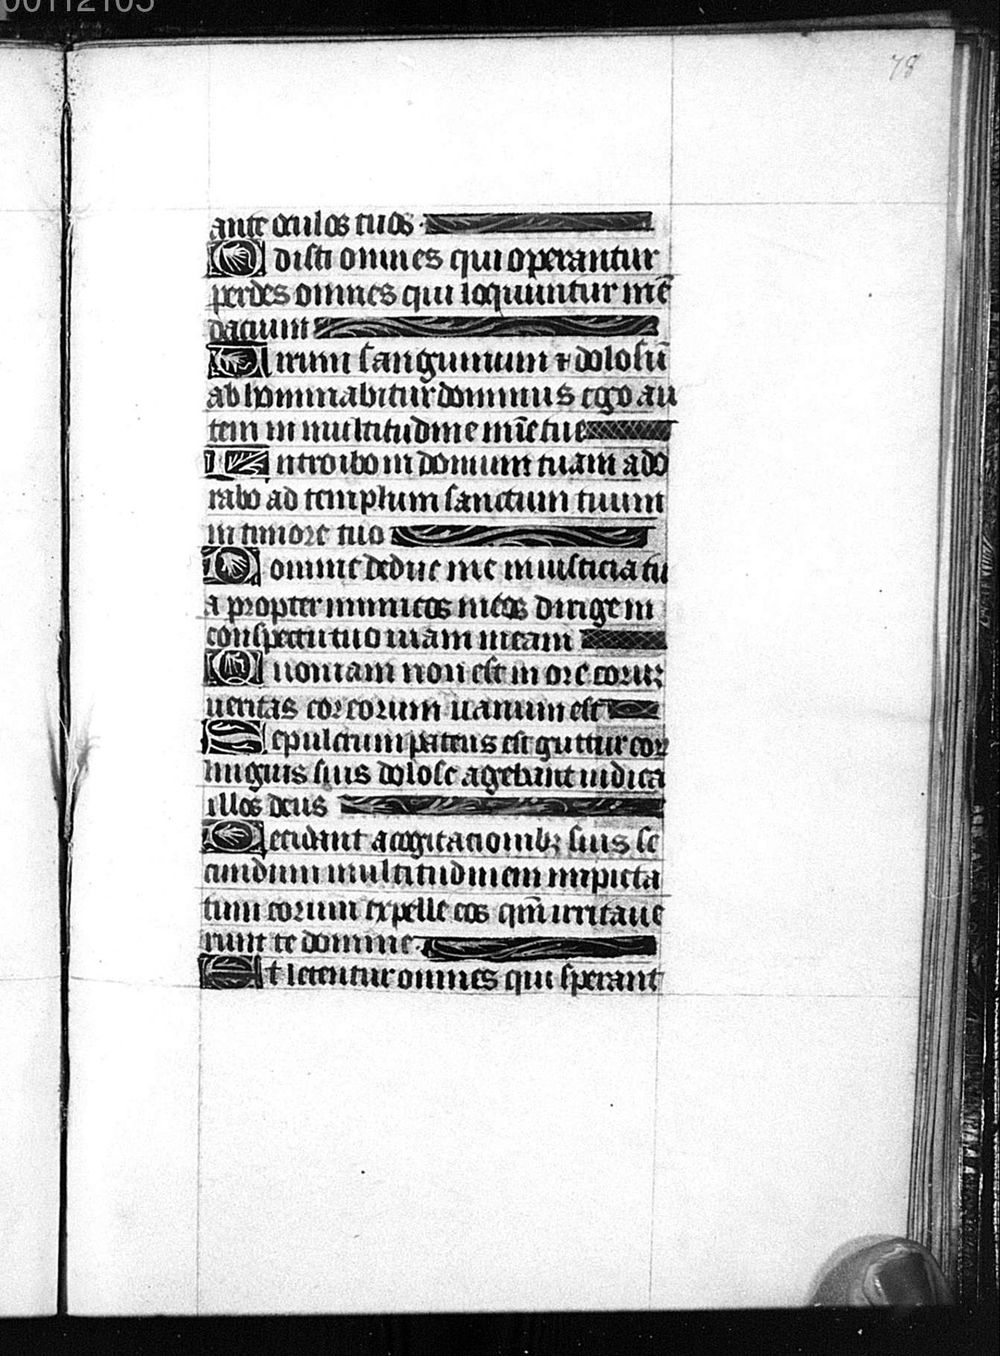 00112105
78
ante oculos tuos
Odisti omnes qui operantur
perdes omnes qui loquuntur mē
dacium
Uirum sanguinum ⁊ dolosū
abhominabitur dominus ego au
tem in multitudine mīe tue
Introibo in domum tuam ado
rabo ad templum sanctum tuum
in timore tuo
Domine deduc me in iusticia tu
a propter inimicos meos dirige in
conspectu tuo uiam meam
Quoniam non est in ore eorū
ueritas cor eorum uanum est
Sepulcrum patens est guttur eoꝝ
linguis suis dolose agebant iudica
illos deus
Decidant a cogitacionibꝫ suis se
cundum multitudinem impieta
tum eorum expelle eos qm̄ irritaue
runt te domine
Et letentur omnes qui sperant